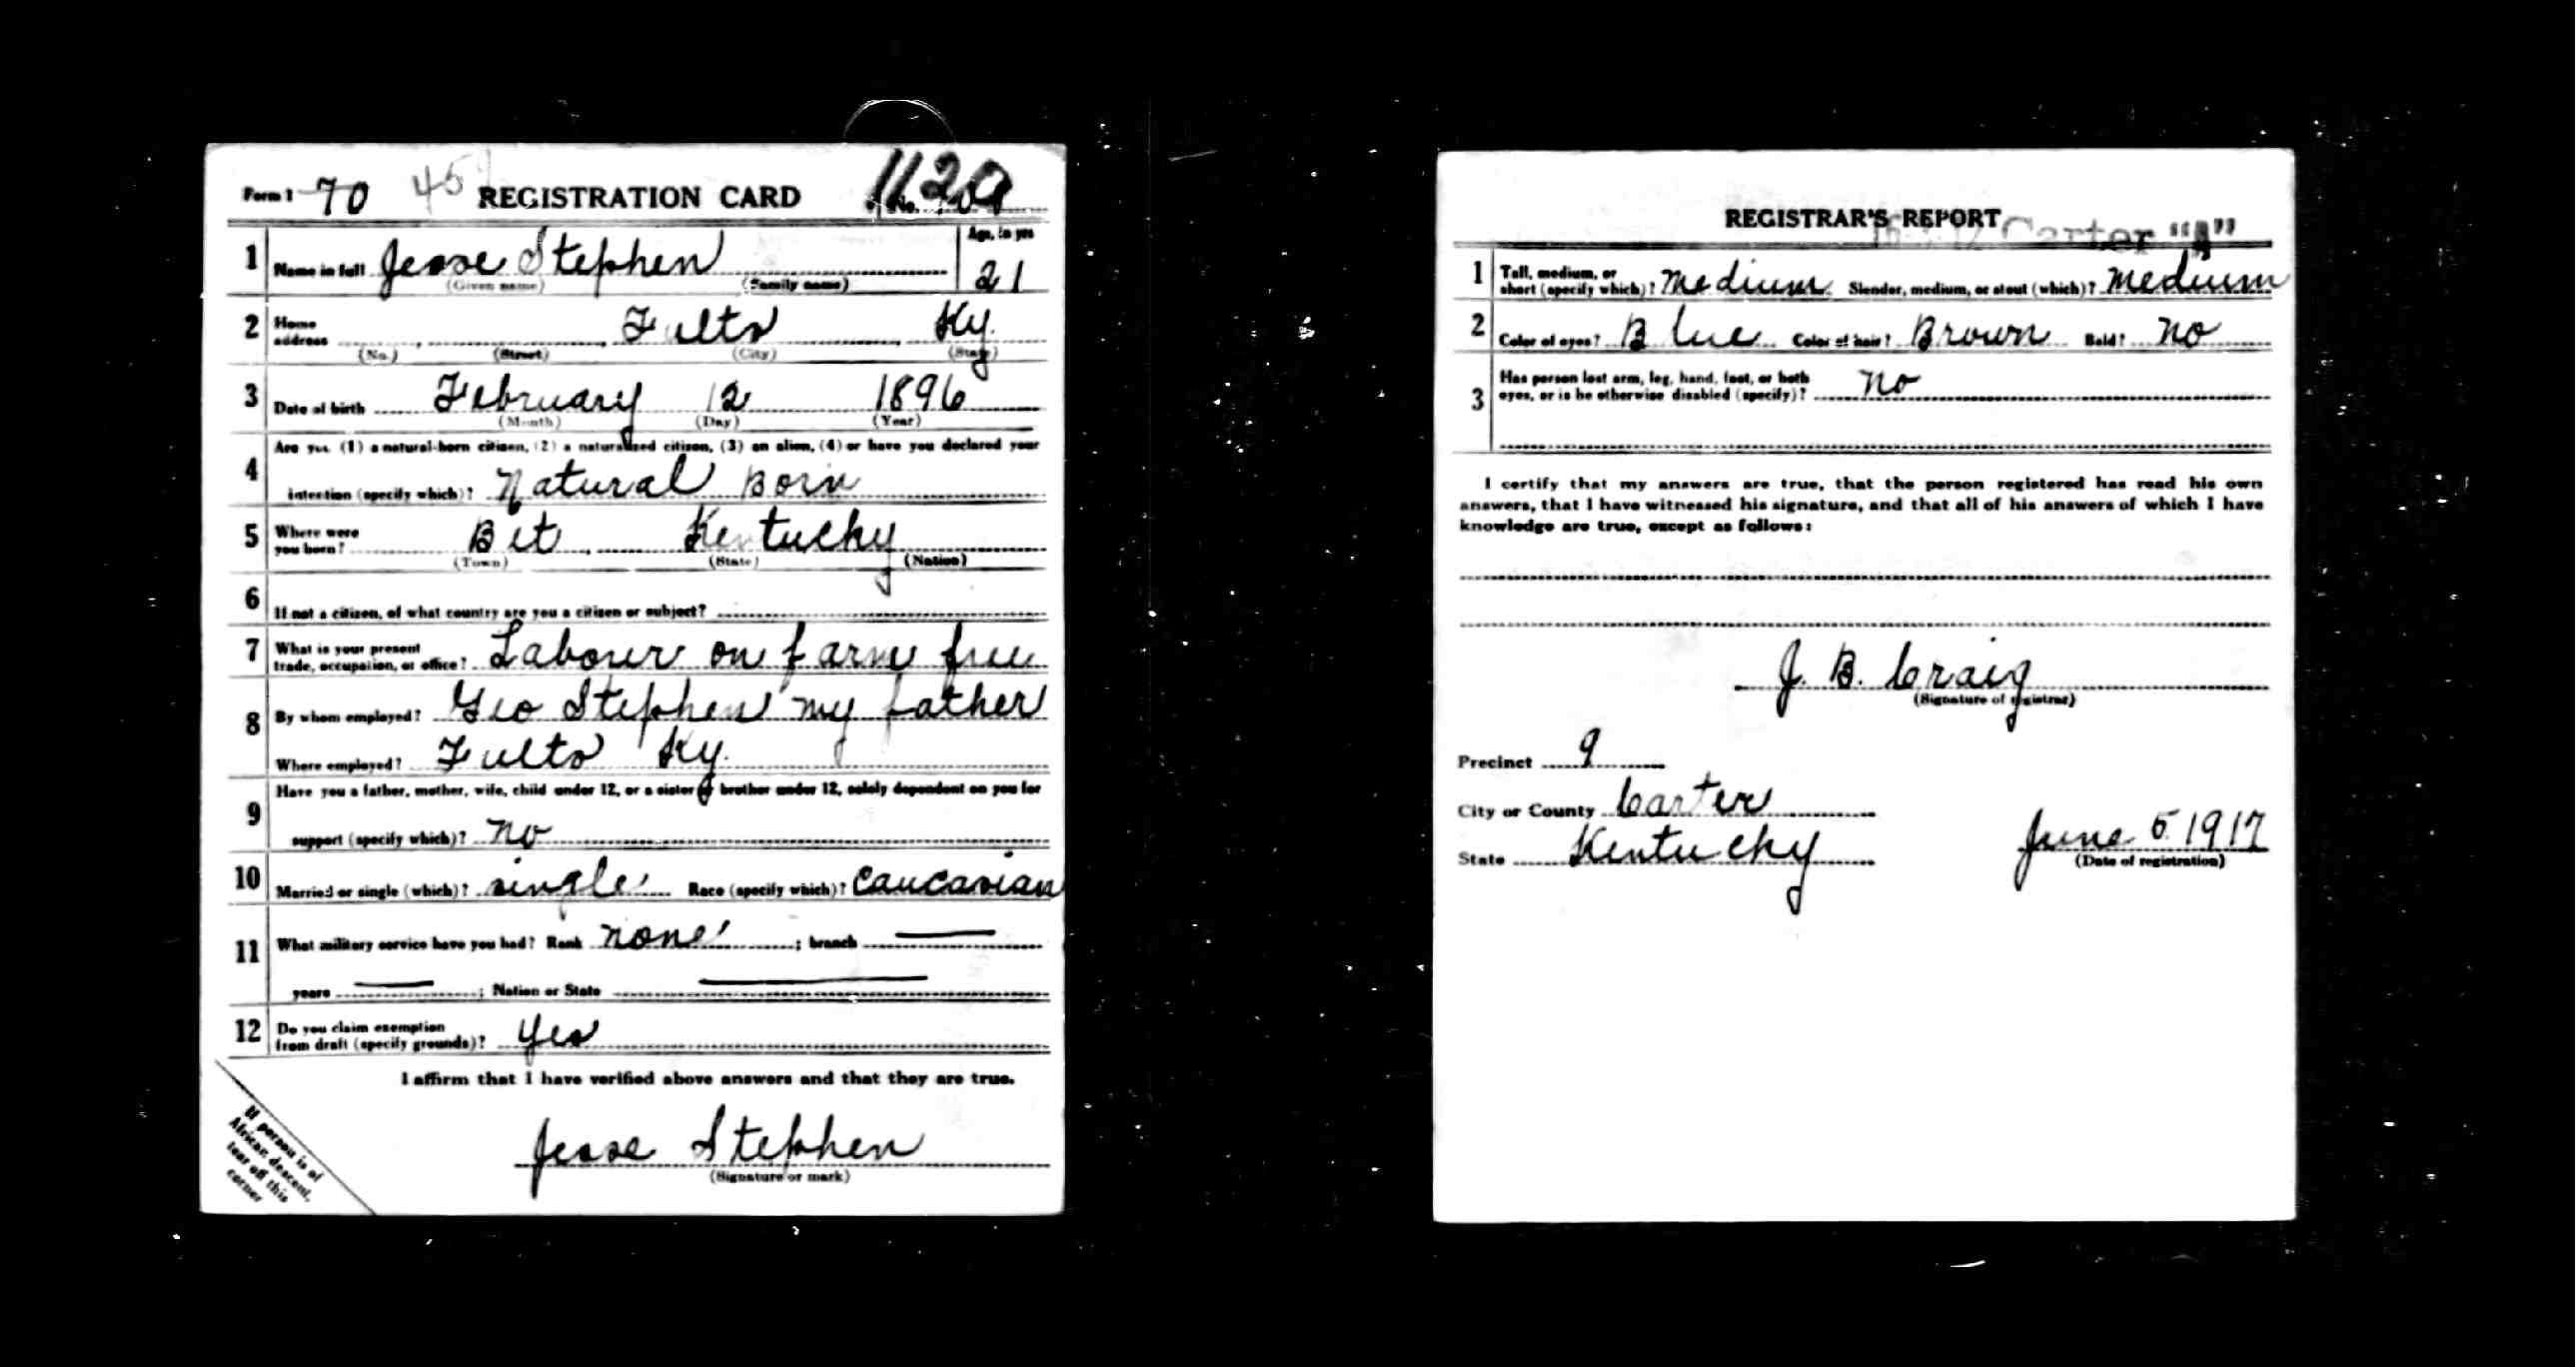 Form 1 70 REGISTRATION CARD No.
1 Name in full Jesse Stephen Age, in yrs 21
(Given name) (Family name)
2 Home address Fults Ky.
(No.) (Street) (City) (State)
3 Date of birth February 12 1896
(Month) (Day) (Year)
4 Are you (1) a natural-born citizen, (2) a naturalized citizen, (3) an alien, (4) or have you declared your
intention (specify which)? Natural Born
5 Where were you born? Bet Kentucky
(Town) (State) (Nation)
6 If not a citizen, of what country are you a citizen or subject?
7 What is your present trade, occupation, or office? Labourer on farm free
8 By whom employed? Geo Stephen my father
Where employed? Fults Ky.
9 Have you a father, mother, wife, child under 12, or a sister or brother under 12, solely dependent on you for
support (specify which)? no
10 Married or single (which)? single Race (specify which)? Caucasian
11 What military service have you had? Rank none ; branch
years ; Nation or State
12 Do you claim exemption from draft (specify grounds)? Yes
I affirm that I have verified above answers and that they are true.
Jesse Stephen
(Signature or mark)
If person is of
African descent,
tear off this
corner
REGISTRAR'S REPORT
Carter "A"
1 Tall, medium, or short (specify which)? Medium Slender, medium, or stout (which)? Medium
2 Color of eyes? Blue Color of hair? Brown Bald? No
3 Has person lost arm, leg, hand, foot, or both
eyes, or is he otherwise disabled (specify)? No
I certify that my answers are true, that the person registered has read his own
answers, that I have witnessed his signature, and that all of his answers of which I have
knowledge are true, except as follows:
J. B. Craig
(Signature of registrar)
Precinct 9
City or County Carter
State Kentucky
June 5 1917
(Date of registration)